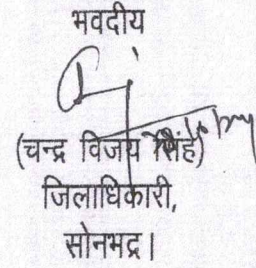 भवदीय
(चन्द्र विजय सिंह)
जिलाधिकारी,
सोनभद्र।